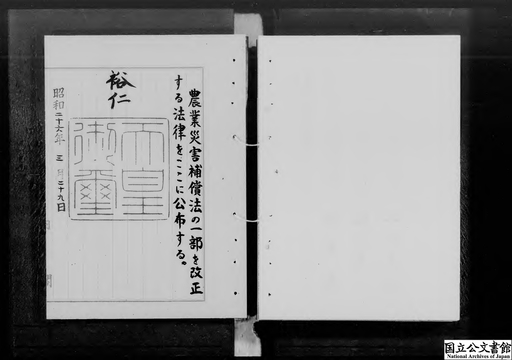 農業災害補償法の一部を改正
する法律をここに公布する。
裕仁
天皇
御璽
昭和二十六年三月二十九日
国立公文書館
National Archives of Japan